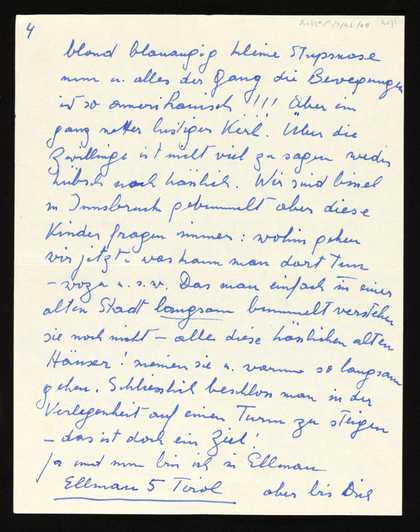 4
blond blauaugig kleine Stupsnase
nun u. alles der Gang die Bewegungen
ist so amerikanisch !!! Aber ein
ganz netter lustiger Kerl. Über die
Zwillinge ist nicht viel zu sagen weder
hübsch noch hässlich. Wir sind bissel
in Innsbruck gebummelt aber diese
Kinder fragen immer: wohin gehen
wir jetzt – was kann man dort tun
– wozu u.s.w. Das man einfach in einer
alten Stadt langsam bummelt verstehen
sie noch nicht – alle diese hässlichen alten
Häuser! meinen sie u. warum so langsam
gehen. Schliesslich beschloss man in der
Verlegenheit auf einen Turm zu steigen
– das ist doch ein Ziel!
Ja und nun bin ich in Ellmau
Ellmau 5 Tirol aber bis Du